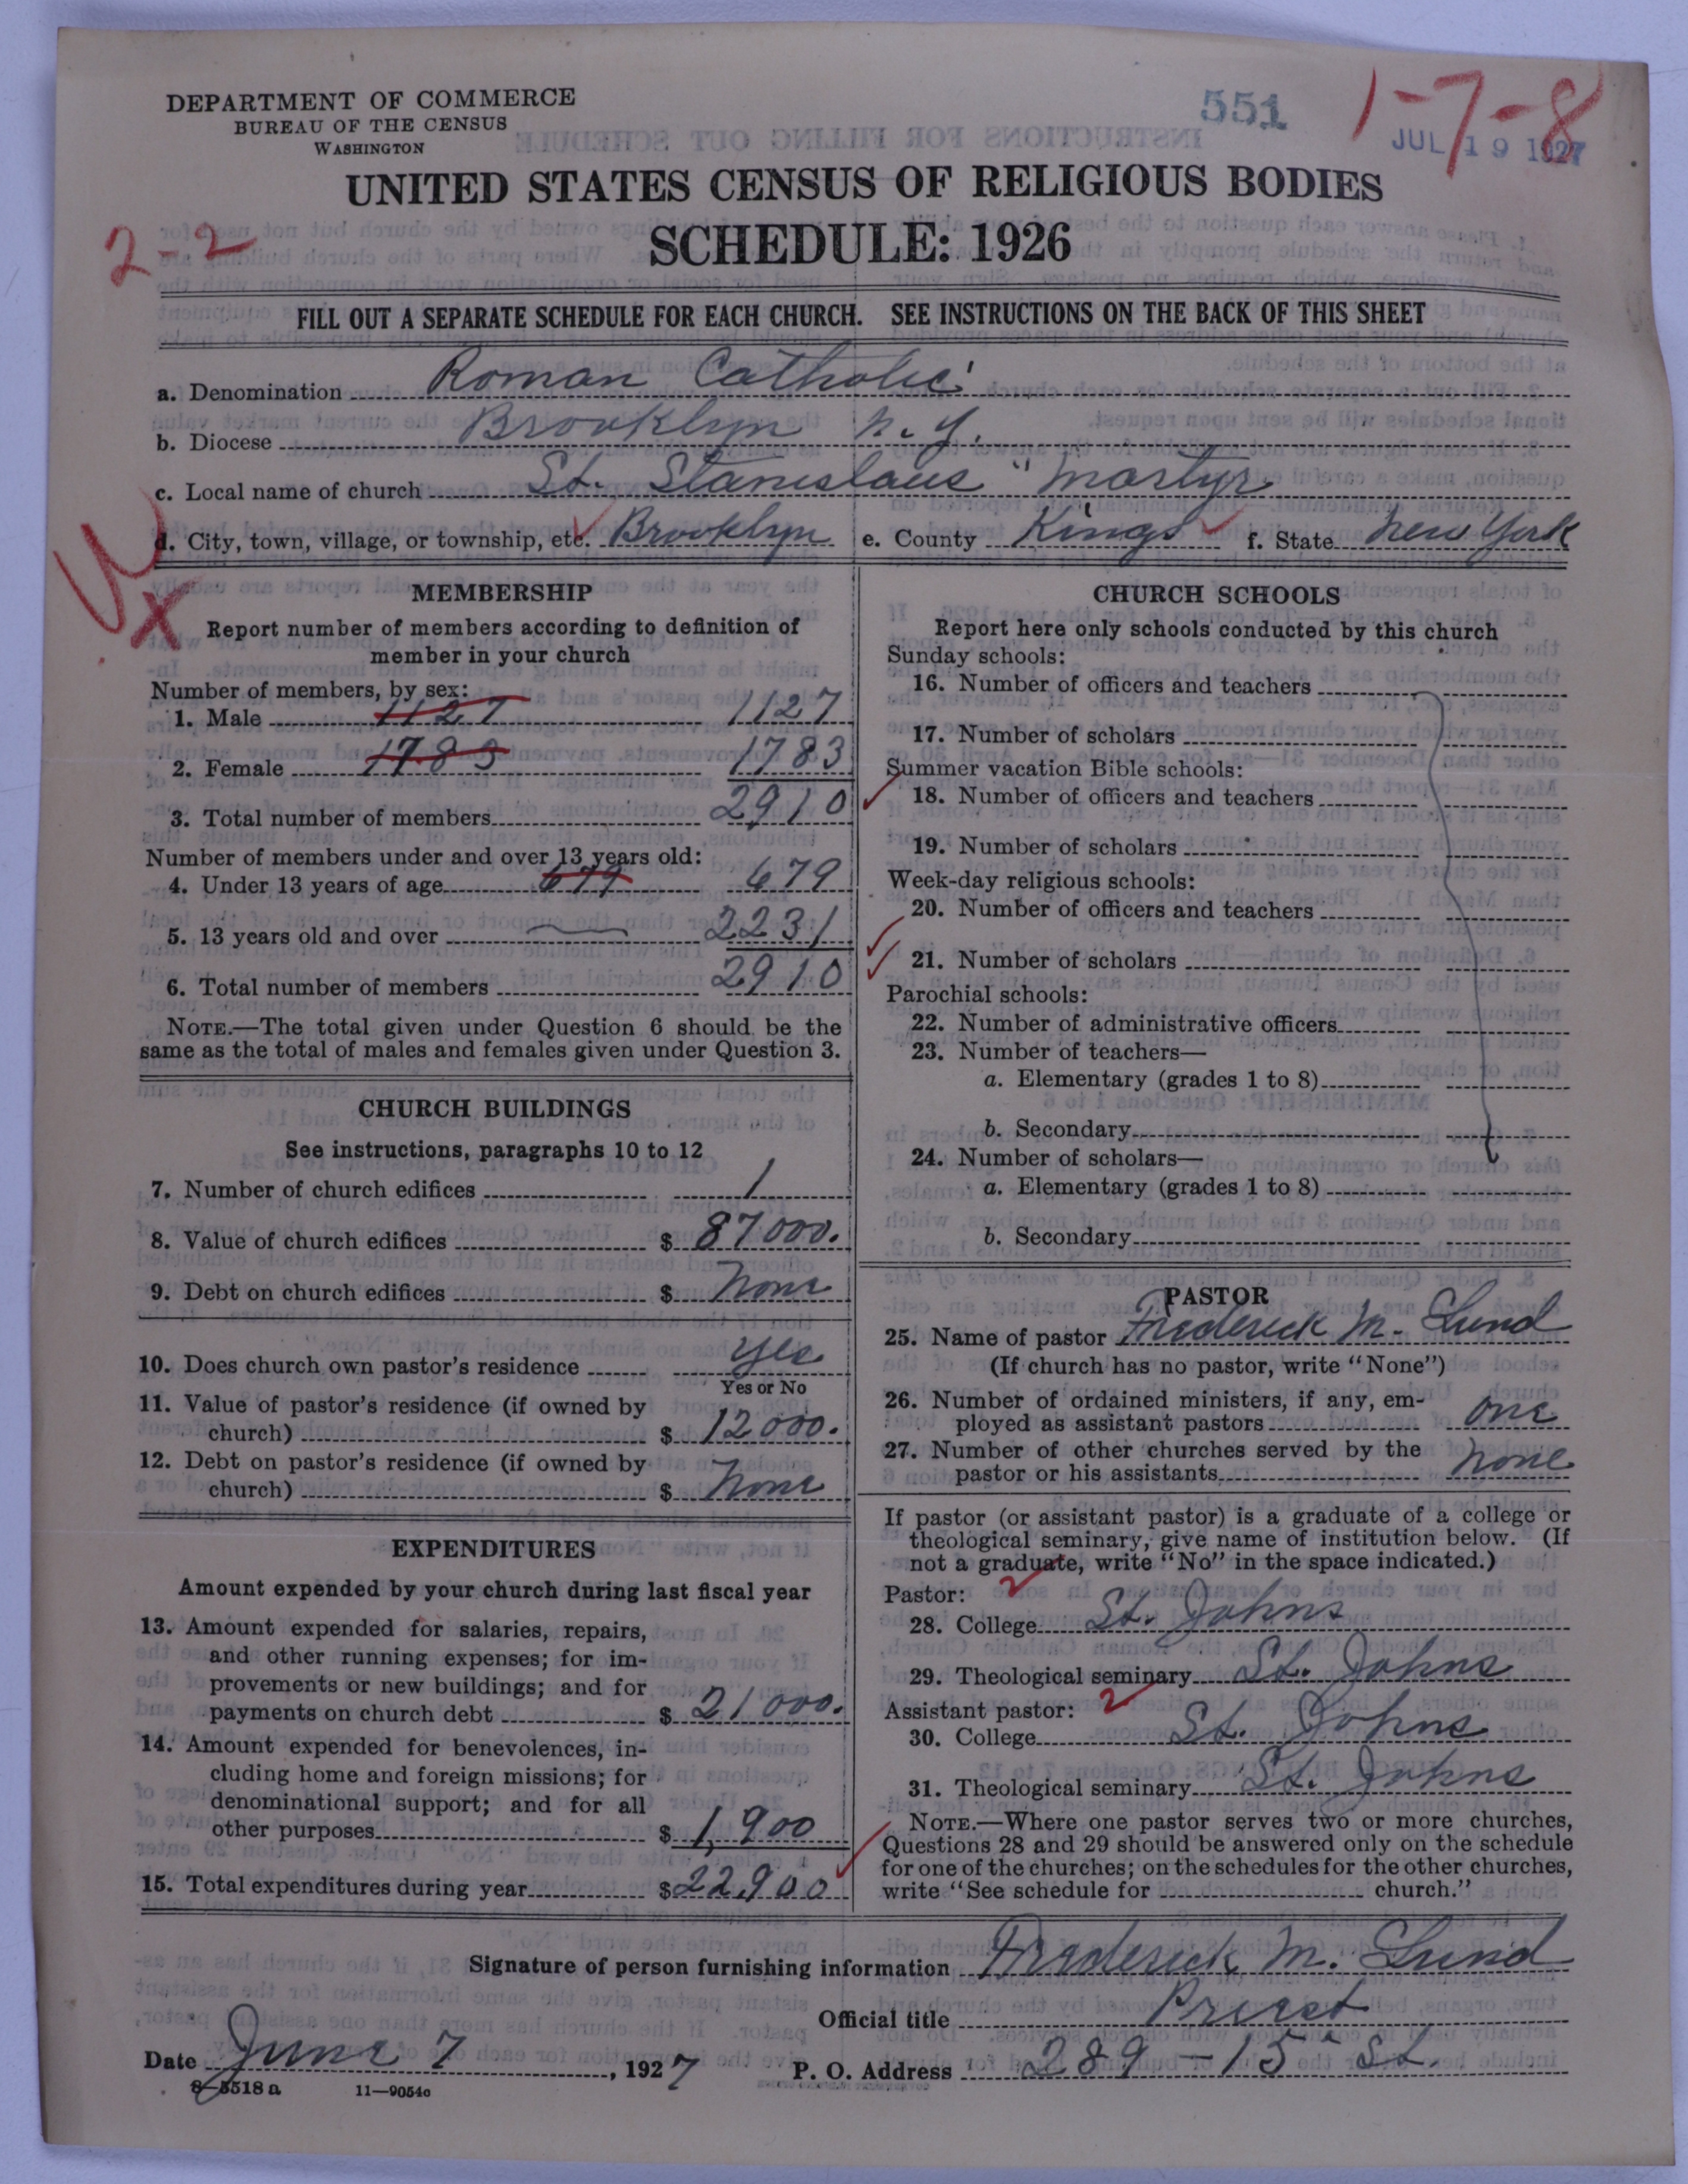 DEPARTMENT OF COMMERCE
BUREAU OF THE CENSUS
WASHINGTON
551
1-7-8
JUL 19 1927
UNITED STATES CENSUS OF RELIGIOUS BODIES
2-2
SCHEDULE: 1926
FILL OUT A SEPARATE SCHEDULE FOR EACH CHURCH. SEE INSTRUCTIONS ON THE BACK OF THIS SHEET
a. Denomination Roman Catholic
b. Diocese Brooklyn N. Y.
c. Local name of church St. Stanislaus "Martyr
d. City, town, village, or township, etc. Brooklyn e. County Kings f. State New York
MEMBERSHIP
Report number of members according to definition of
member in your church
Number of members, by sex:
1. Male 1127 1127
2. Female 1783 1783
3. Total number of members 2910
Number of members under and over 13 years old:
4. Under 13 years of age 679 679
5. 13 years old and over 2231
6. Total number of members 2910
NOTE.—The total given under Question 6 should be the
same as the total of males and females given under Question 3.
CHURCH BUILDINGS
See instructions, paragraphs 10 to 12
7. Number of church edifices 1
8. Value of church edifices $ 87000.
9. Debt on church edifices $ None
10. Does church own pastor's residence Yes
Yes or No
11. Value of pastor's residence (if owned by
church) $ 12000.
12. Debt on pastor's residence (if owned by
church) $ None
EXPENDITURES
Amount expended by your church during last fiscal year
13. Amount expended for salaries, repairs,
and other running expenses; for im-
provements or new buildings; and for
payments on church debt $ 21000.
14. Amount expended for benevolences, in-
cluding home and foreign missions; for
denominational support; and for all
other purposes $ 1,900
15. Total expenditures during year $ 22,900
CHURCH SCHOOLS
Report here only schools conducted by this church
Sunday schools:
16. Number of officers and teachers
17. Number of scholars
Summer vacation Bible schools:
18. Number of officers and teachers
19. Number of scholars
Week-day religious schools:
20. Number of officers and teachers
21. Number of scholars
Parochial schools:
22. Number of administrative officers
23. Number of teachers—
a. Elementary (grades 1 to 8)
b. Secondary
24. Number of scholars—
a. Elementary (grades 1 to 8)
b. Secondary
PASTOR
25. Name of pastor Frederick M. Lund
(If church has no pastor, write "None")
26. Number of ordained ministers, if any, em-
ployed as assistant pastors one
27. Number of other churches served by the
pastor or his assistants None
If pastor (or assistant pastor) is a graduate of a college or
theological seminary, give name of institution below. (If
not a graduate, write "No" in the space indicated.)
Pastor: 2
28. College St. Johns
29. Theological seminary St. Johns
Assistant pastor: 2
30. College St. Johns
31. Theological seminary St. Johns
NOTE.—Where one pastor serves two or more churches,
Questions 28 and 29 should be answered only on the schedule
for one of the churches; on the schedules for the other churches,
write "See schedule for church."
Signature of person furnishing information Frederick M. Lund
Official title Priest
Date June 7, 1927 P. O. Address 289 - 15 St.
8-5518 a 11-9054c